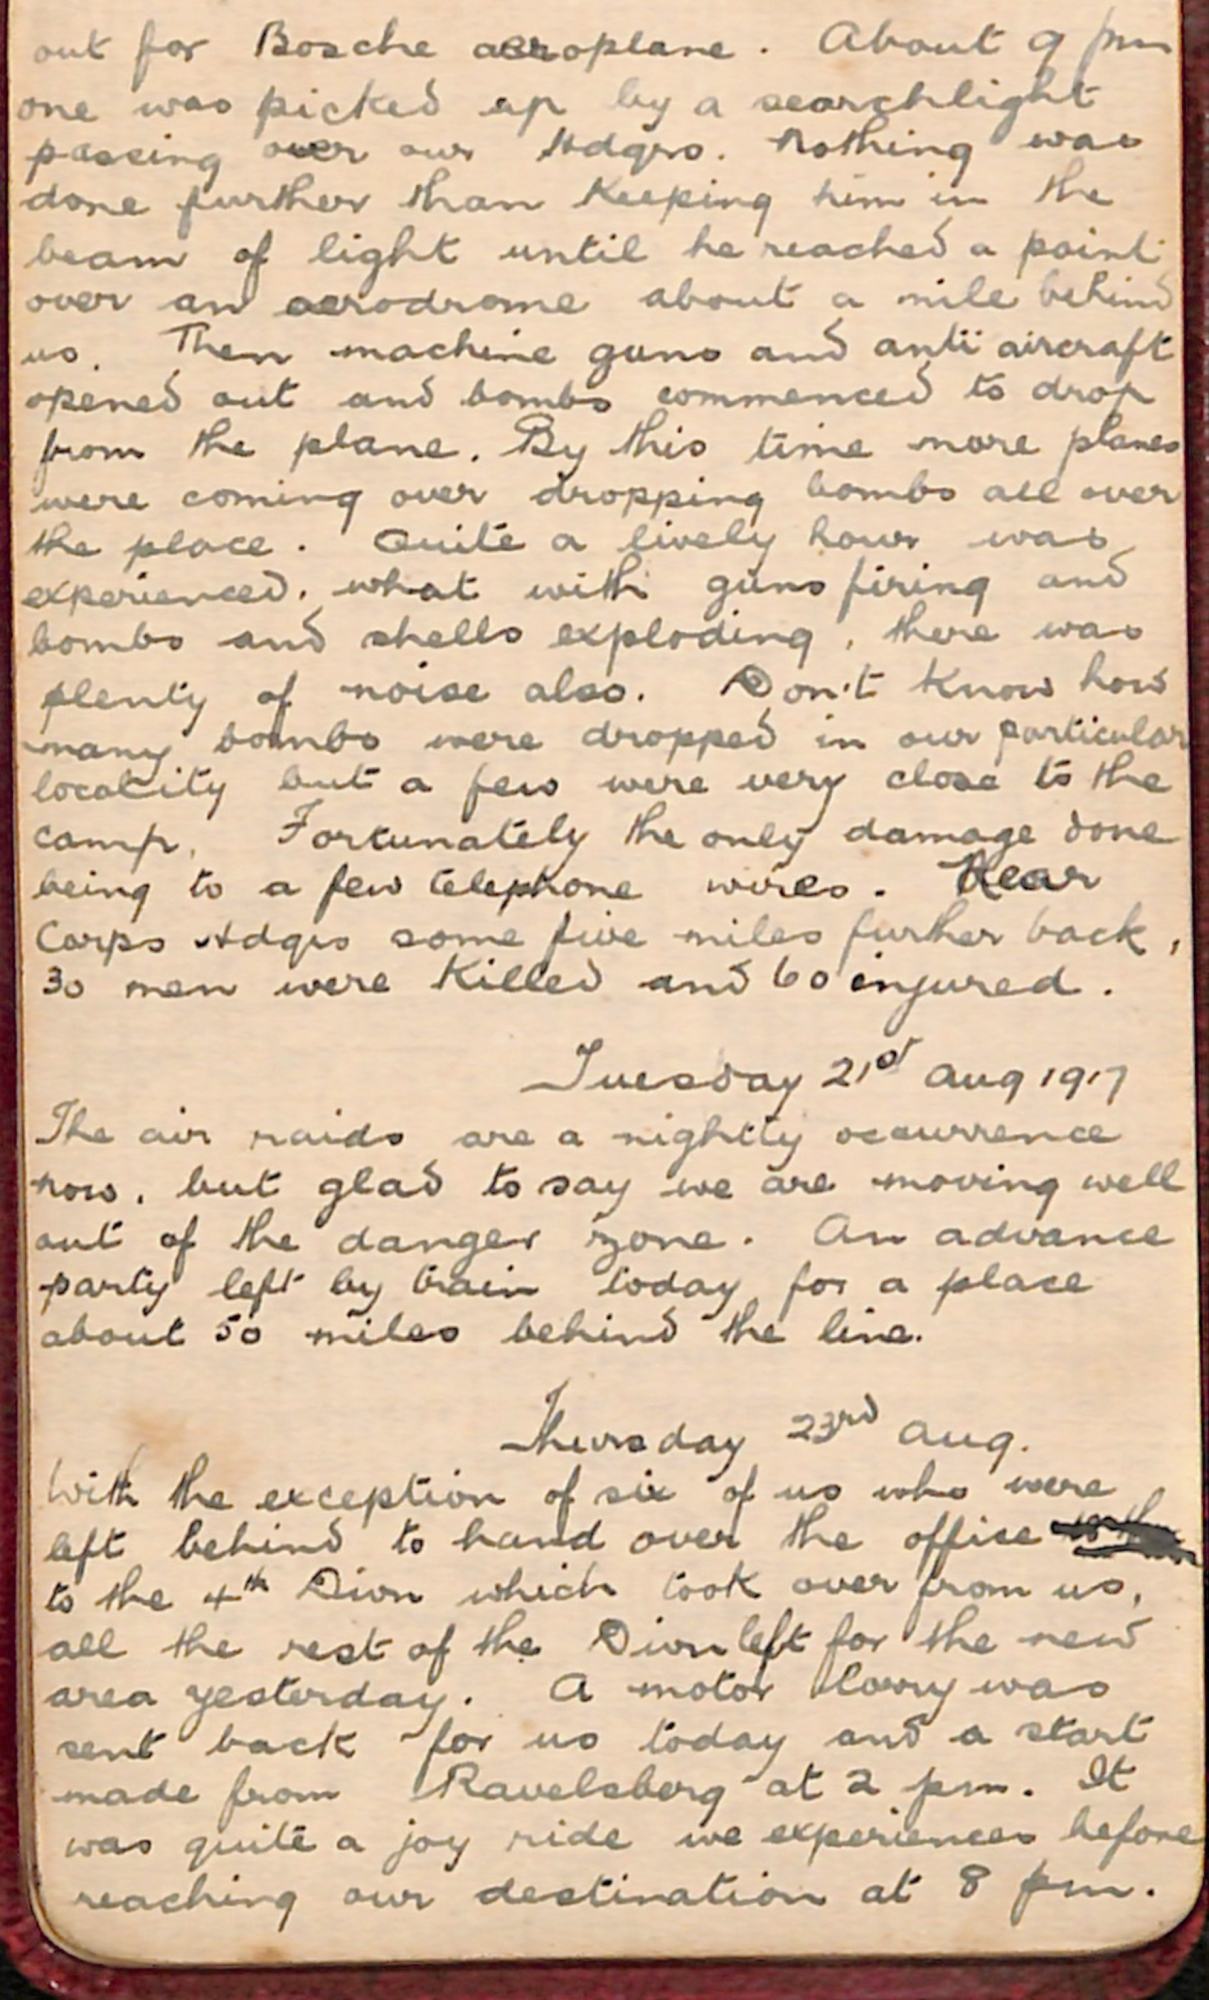 out for Bosche aeroplane. About 9 pm
one was picked up by a searchlight
passing over our Hdqrs. Nothing was
done further than keeping him in the
beam of light until he reached a point
over an aerodrome about a mile behind
us. Then machine guns and anti aircraft
opened out and bombs commenced to drop
from the plane. By this time more planes
were coming over dropping bombs all over
the place. Quite a lively hour was
experienced, what with guns firing and
bombs and shells exploding, there was
plenty of noise also. Don't know how
many bombs were dropped in our particular
locality but a few were very close to the
camp. Fortunately the only damage done
being to a few telephone wires. Near
Corps Hdqrs some five miles further back,
30 men were killed and 60 injured.
Tuesday 21st Aug 1917
The air raids are a nightly occurrence
now, but glad to say we are moving well
out of the danger zone. An advance
party left by train today for a place
about 50 miles behind the line.
Thursday 23rd Aug.
With the exception of six of us who were
left behind to hand over the office
to the 4th Divn which took over from us,
all the rest of the Divn left for the new
area yesterday. A motor lorry was
sent back for us today and a start
made from Ravelsberg at 2 pm. It
was quite a joy ride we experiences before
reaching our destination at 8 pm.